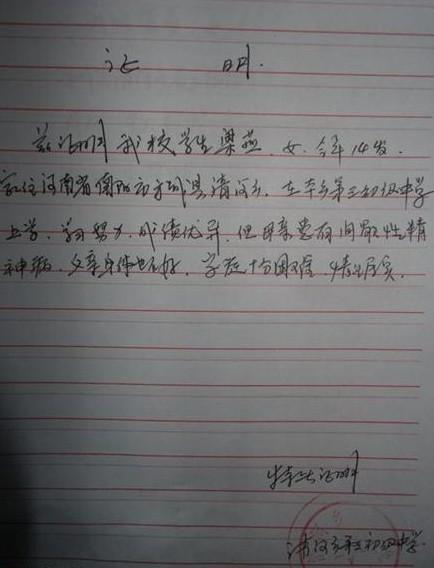 证 明
兹证明我校学生梁燕,女,今年14岁,
家住河南省南阳市方城县清河乡,在本乡第三初级中学
上学,学习努力,成绩优异,但母亲患有间歇性精
神病,父亲身体也不好,家庭十分困难,情况属实。
特此证明
清河乡第三初级中学